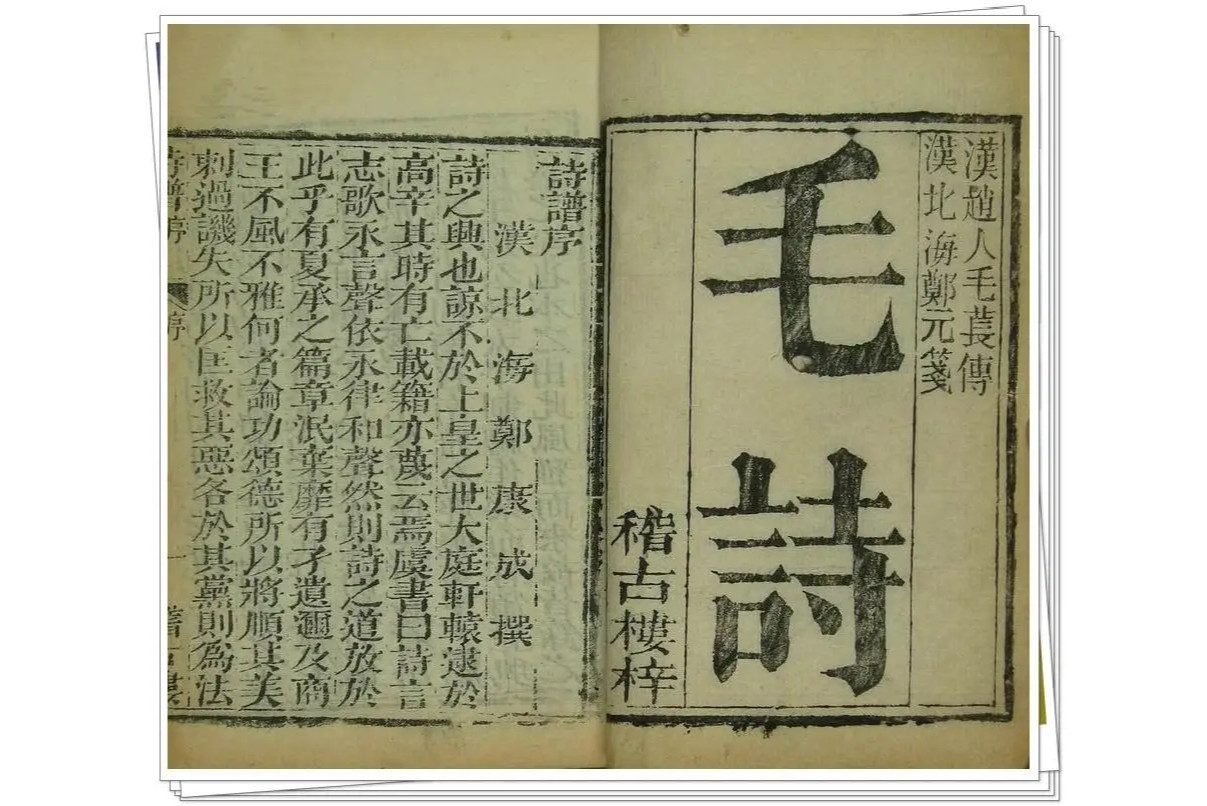 漢趙人毛萇傳
漢北海鄭元箋
毛詩
稽古樓梓
詩譜序
漢北海鄭康成撰
詩之興也諒不於上皇之世大庭軒轅逮於
高辛其時有亡載籍亦蔑云焉虞書曰詩言
志歌永言聲依永律和聲然則詩之道放於
此乎有夏承之篇章泯棄靡有孑遺邇及商
王不風不雅何者論功頌德所以將順其美
刺過譏失所以匡救其惡各於其黨則為法
詩譜序 序 一 稽古樓